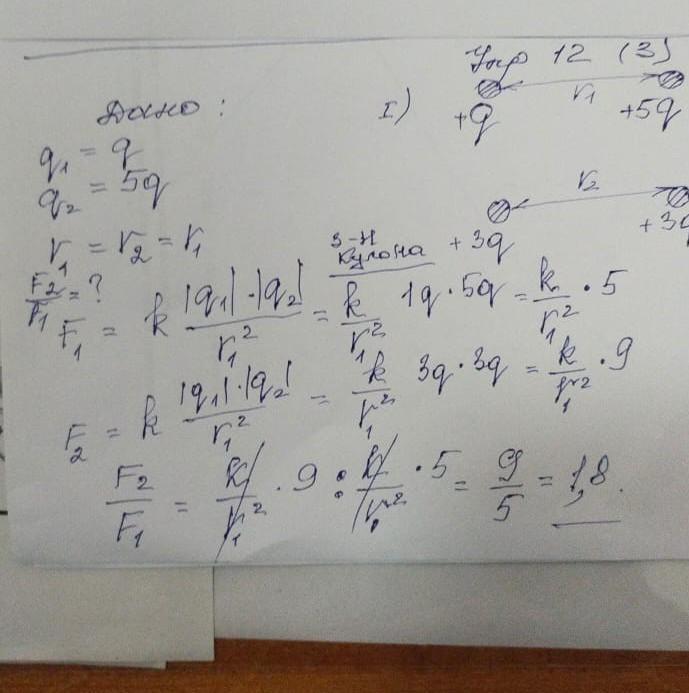 Упр 12 (3)
Дано : I) r₁
+q +5q
q₁ = q
q₂ = 5q
r₂
r₁ = r₂ = r₁
+3q +3q
з-н
Кулона
F₂/F₁ = ?
F₁ = k |q₁|·|q₂|/r₁² = k/r₁² 1q·5q = k/r₁² · 5
F₂ = k |q₁|·|q₂|/r₁² = k/r₁² 3q·3q = k/r₁² · 9
F₂/F₁ = k/r₁² · 9 : k/r₁² · 5 = 9/5 = 1,8.